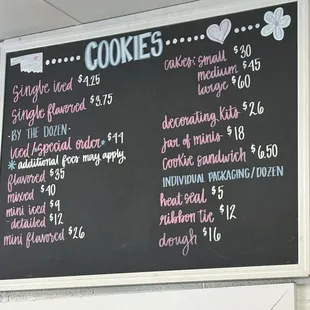 COOKIES
Single iced $4.25
Single flavored $3.75
- BY THE DOZEN -
iced/special order $44
* additional fees may apply
flavored $35
mixed $40
mini iced $9
- detailed $12
mini flavored $26
cakes: small $30
medium $45
large $60
decorating kits $26
jar of minis $18
cookie sandwich $6.50
INDIVIDUAL PACKAGING/DOZEN
heat seal $5
ribbon tie $12
dough $16